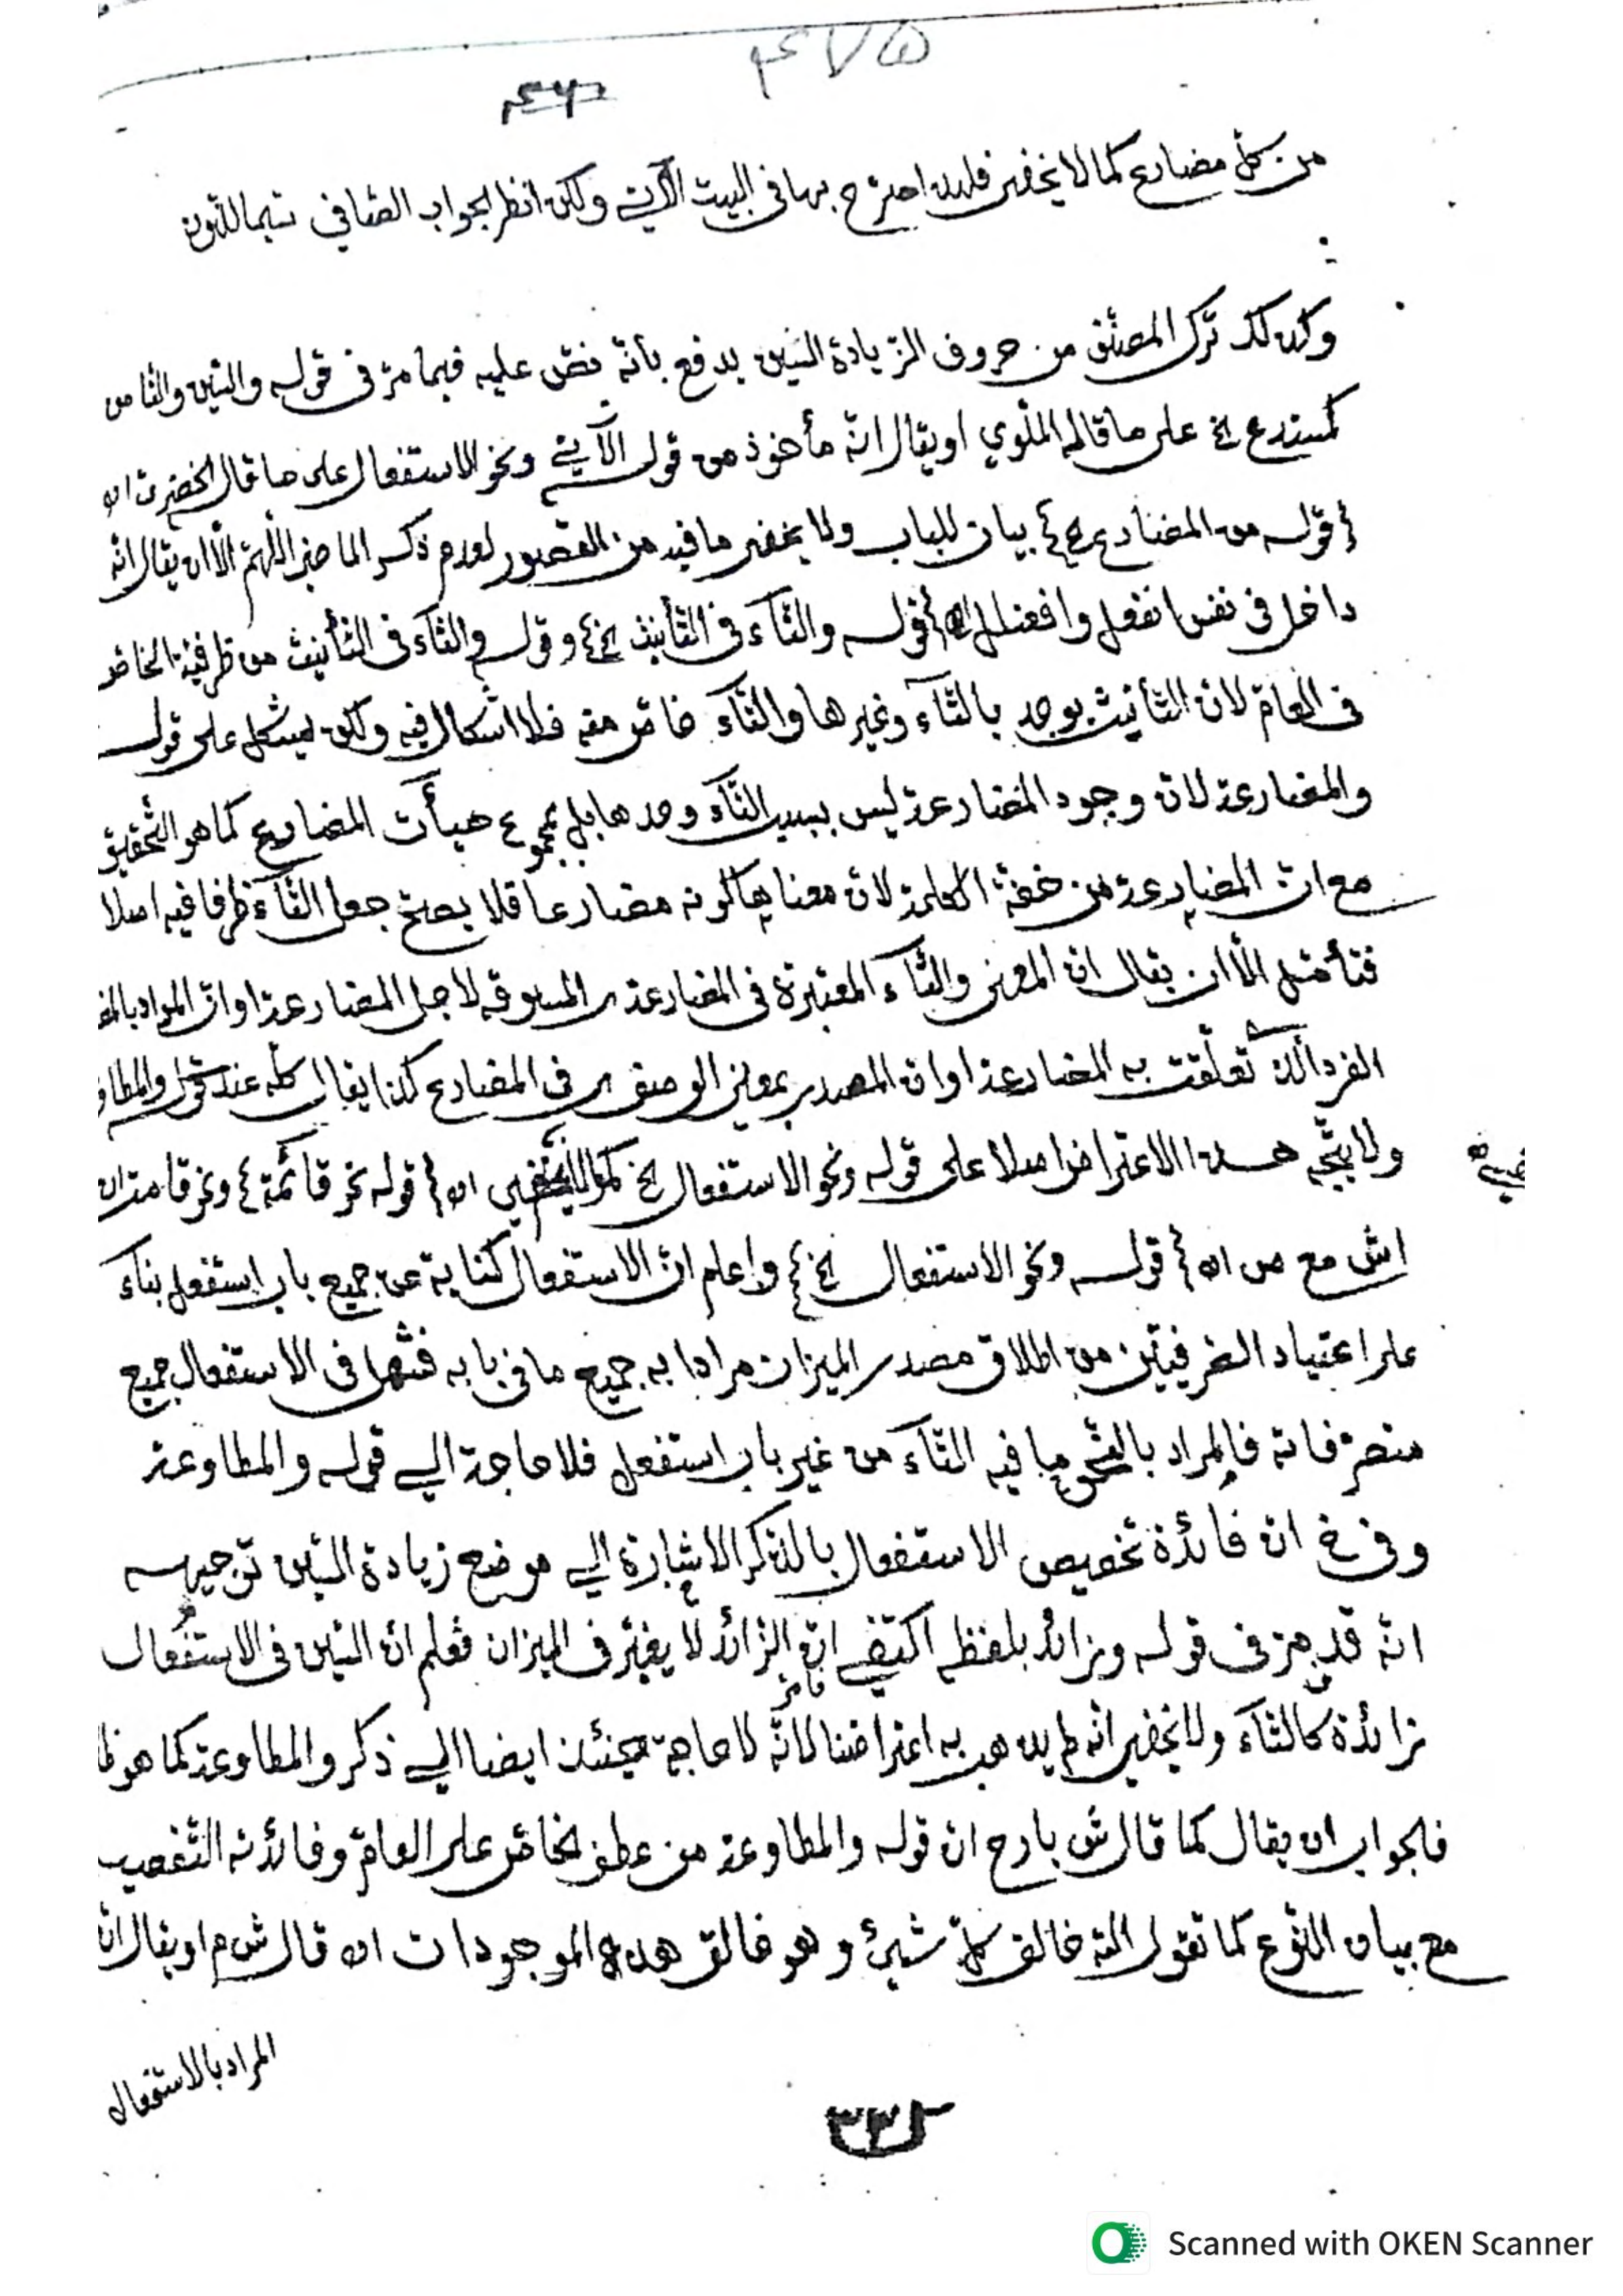 ٤٧٥
من كلّ مضارع كما لا يخفى فلهذا احترج بها في البيت الآتي ولكن انظر الجواب الصّافي تيماللنون
وكذلك ترك المصنّف من حروف الزّيادة السّين يدفع بأنّه نصّ عليه فيما مرّ في قوله والسّين والتّا من
كستدع الخ على ما قاله الملّوي او يقال انّه مأخوذ من قوله الآتي ونحو الاستفعال على ما قال الخضريّ اه
{قوله من المضارع الخ} بيان للباب ولا يخفى ما فيه من القصور لعدم ذكر الماضي اللّهمّ الّا ان يقال انّه
داخل في نفس انفعل وافعنلل اه {قوله والتّآء في التّأنيث الخ} وقوله والتّآء في التّأنيث من ظرفيّة الخاصّ
في العامّ لانّ التّأنيث يوجد بالتّآء وغيرها والتّآء خاصّ منه فلا اشكال فيه ولكن يشكل على قوله
والمضارعة لانّ وجود المضارعة ليس بسبب التّآء وحدها بل بمجموع هيأت المضارع كما هو التّحقيق
مع انّ المضارعة من خفّة الكلمة لانّ معناها كونه مضارعا فلا يصحّ جعل التّآء ظرفا فيه اصلا
فتأمّل الّا ان يقال انّ المعنى والتّآء المعتبرة في المضارعة ر المسوقه لاجل المضارعة او انّ المراد
الفرد الّذي تعلّقت به المضارعة او انّ المصدر بمعنى الوصف ر في المضارع كذا يقال كلّه عند قوله والمطاو
ولا يتّجه هذا الاعتراض اصلا على قوله ونحو الاستفعال الخ كما لا يخفى اه {قوله نحو قائمة} ونحو قامت اه
اش مع ص اه {قوله ونحو الاستفعال الخ} واعلم انّ الاستفعال كناية عن جميع باب استفعل بناء
على اعتياد الصّرفيّين من اطلاق مصدر الميزان مرادا به جميع ما في بابه فشمل في الاستفعال جميع
متصرّفاته فالمراد بالنّحو ما فيه التّآء من غير باب استفعل فلا حاجة الى قوله والمطاوعة
وفي خ انّ فائدة تخصيص الاستفعال بالذّكر الاشارة الى موضع زيادة السّين توجيهه
انّه قد مرّ في قوله وزائد بلفظه اكتفي انّ الزّائد لا يغيّر في الميزان فعلم انّ السّين في الاستفعال
زائدة كالتّآء ولا يخفى انّه لم يذهب به اعتراضنا لانّه لا حاجة حينئذ ايضا الى ذكر والمطاوعة كما هو ظا
فالجواب ان يقال كما قال ش بارح انّ قوله والمطاوعة من عطف الخاصّ على العامّ وفائدته التّنصيب
مع بيان النّوع كما تقول اللّه خالق كلّ شيئ وهو خالق هذه الموجودات اه قال ش م او يقال انّ
المراد بالاستفعال
Scanned with OKEN Scanner